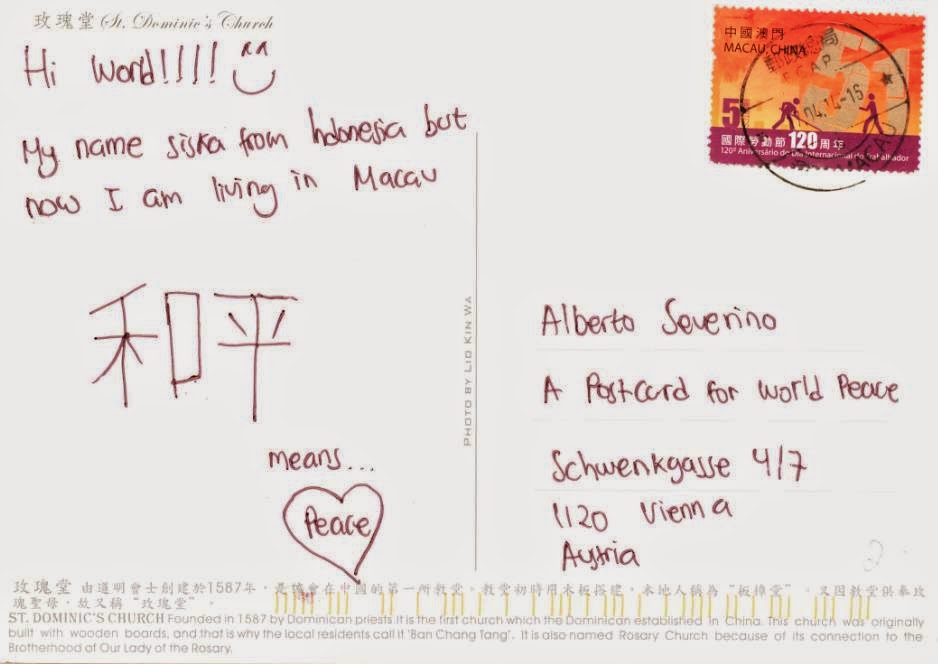 玫瑰堂 St. Dominic's Church
Hi World!!!!
My name siska from Indonesia but
now I am living in Macau
和平
means...
Peace
中國澳門
MACAU, CHINA
國際勞動節 120 周年
120º Aniversário do Dia Internacional do Trabalhador
04.14-15
PHOTO BY LIO KIN WA
Alberto Severino
A Postcard for World Peace
Schwenkgasse 4/7
1120 Vienna
Austria
2
玫瑰堂 由道明會士創建於1587年，是該會在中國的第一所教堂。教堂初時用木板搭建，本地人稱為“板樟堂”。又因教堂供奉玫
瑰聖母，故又稱“玫瑰堂”。
ST. DOMINIC'S CHURCH Founded in 1587 by Dominican priests. It is the first church which the Dominican established in China. This church was originally
built with wooden boards, and that is why the local residents call it 'Ban Chang Tang'. It is also named Rosary Church because of its connection to the
Brotherhood of Our Lady of the Rosary.